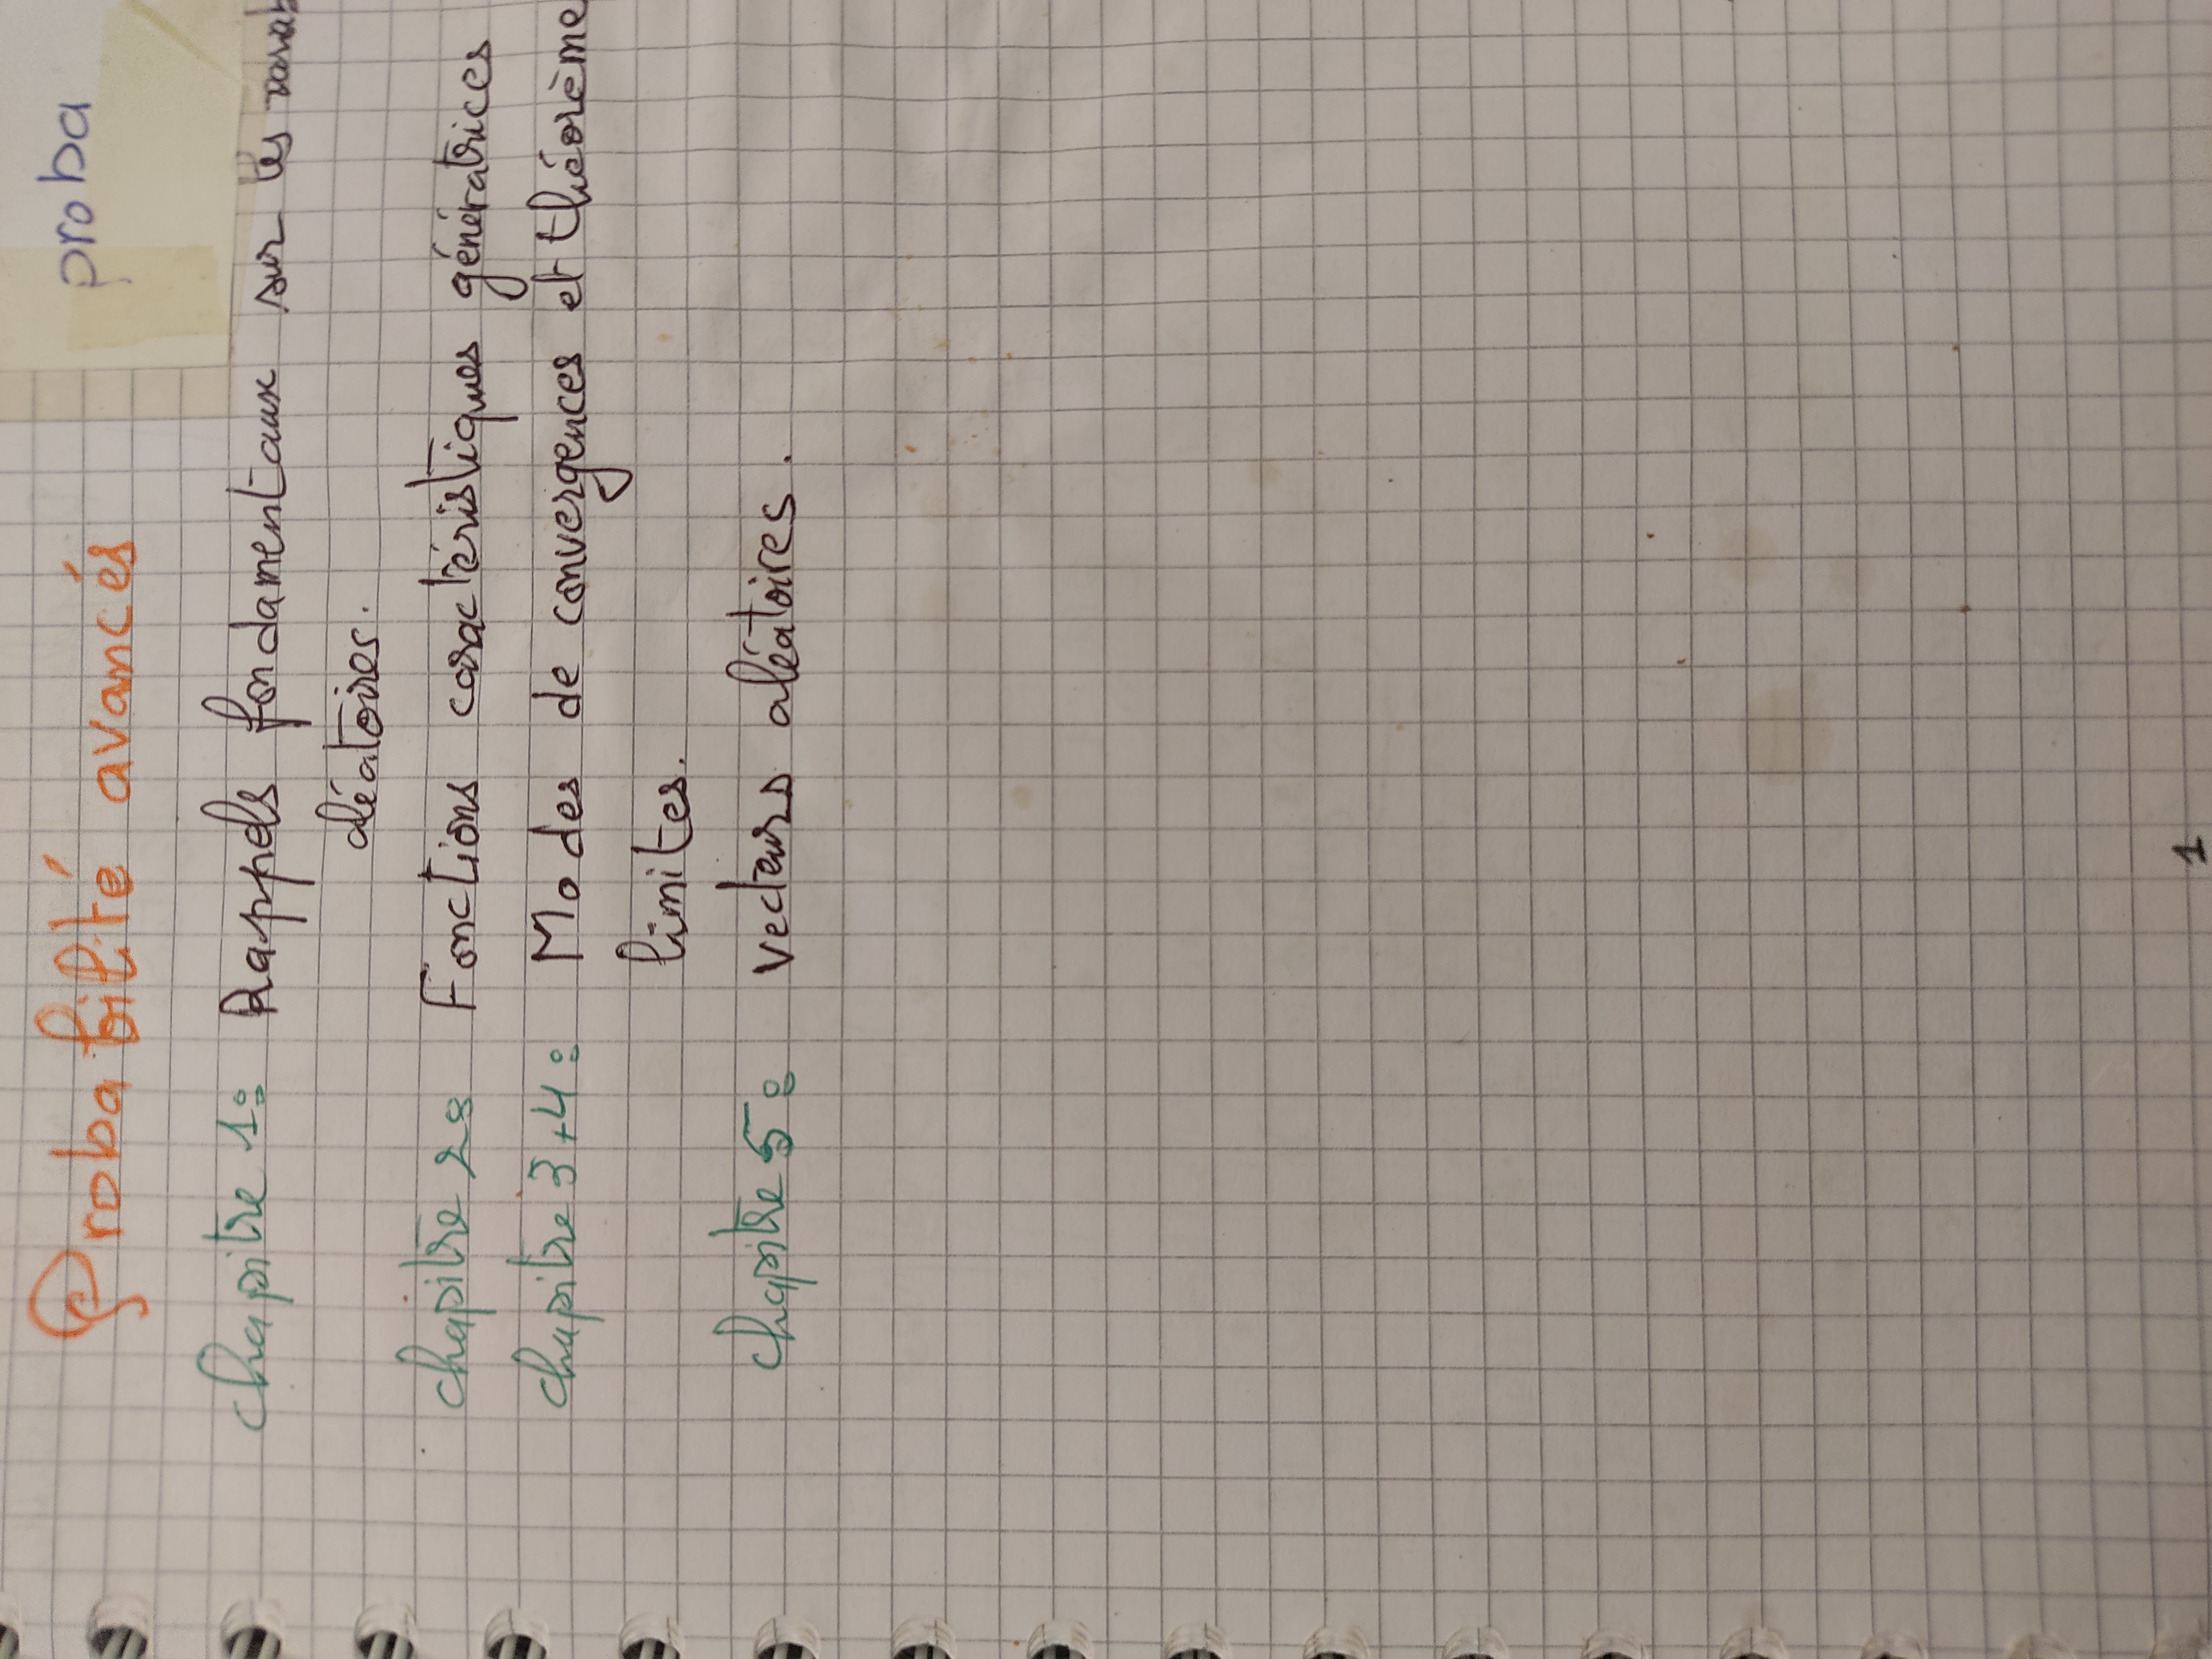 Probabilité avancés
proba
chapitre 1: Rappels fondamentaux sur les
aléatoires.
chapitre 2: Fonctions caractéristiques génératrices
chapitre 3+4: Modes de convergences et théorème
limites.
chapitre 5: vecteurs aléatoires.
1